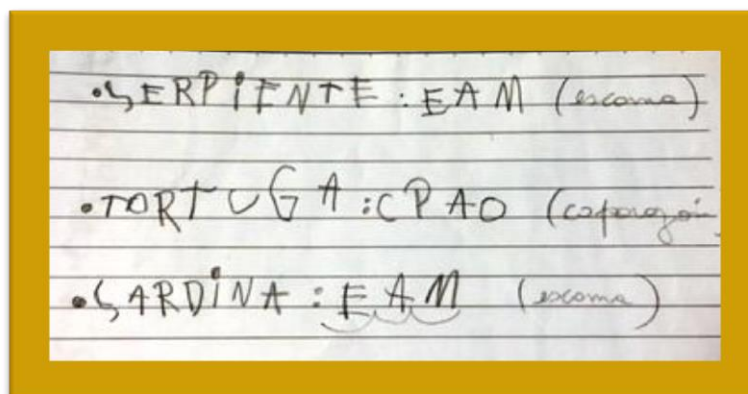 •SERPiENTE: EAM (escama)
•TORTUGA: CPAO (caparazón
•SARDiNA: EAM (escama)